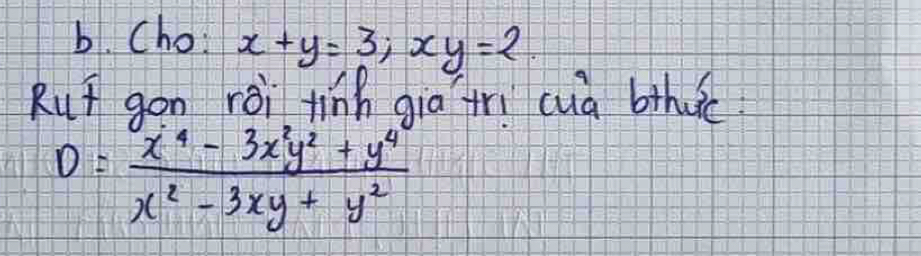 b. Cho: x + y = 3; xy = 2.
Rut gọn rồi tính giá trị của bthức:
D = \frac{x^4 - 3x^2y^2 + y^4}{x^2 - 3xy + y^2}